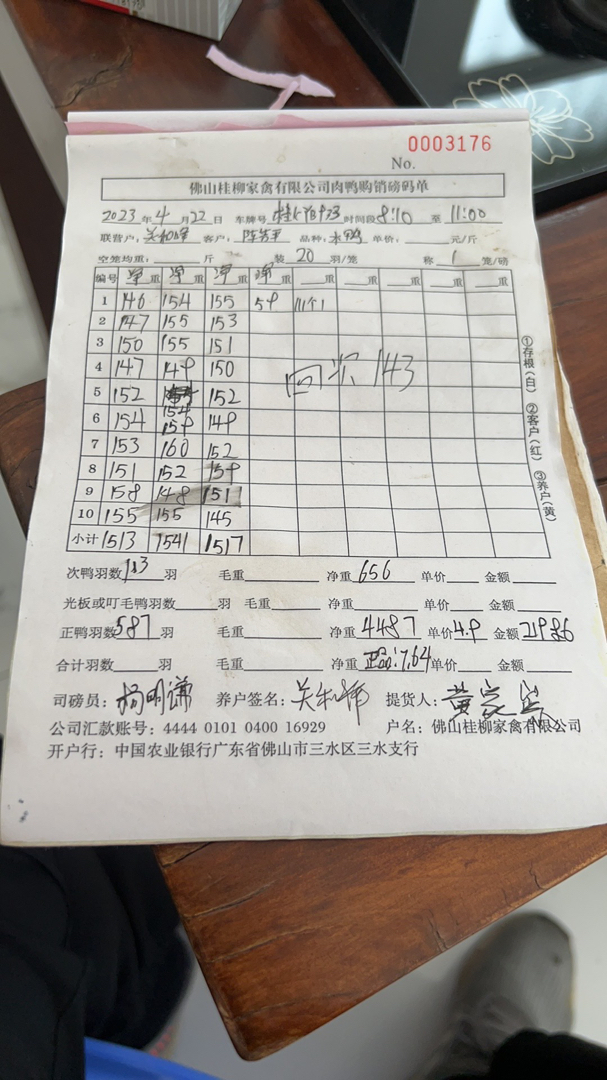 0003176
No.
佛山桂柳家禽有限公司肉鸭购销磅码单
2023年4月22日 车牌号 时间段8:10至11:00
联营户: 客户: 品种:水鸭 单价:元/斤
空笼均重:斤 装20羽/笼 称1笼/磅
编号 净重 净重 净重 净重 重 重 重 重
1 146 154 155 59
2 147 155 153
3 150 155 151
4 147 149 150 回 143
5 152 154 152
6 154 159 149
7 153 160 152
8 151 152 159
9 158 148 151
10 155 155 145
小计 1513 1541 1517
①存根(白) ②客户(红) ③养户(黄)
次鸭羽数113羽 毛重 净重656 单价 金额
光板或叮毛鸭羽数羽 毛重 净重 单价 金额
正鸭羽数587羽 毛重 净重4487 单价4.9 金额21986
合计羽数羽 毛重 净重 7.64 单价 金额
司磅员:杨明谦 养户签名:关和 提货人:黄家
公司汇款账号: 4444 0101 0400 16929 户名: 佛山桂柳家禽有限公司
开户行: 中国农业银行广东省佛山市三水区三水支行